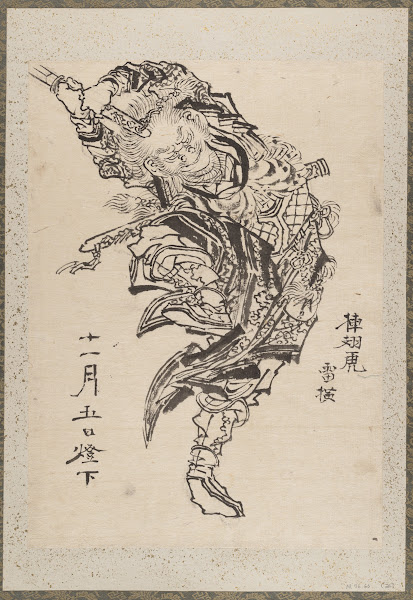 挿翅虎
雷横
十一月五日燈下